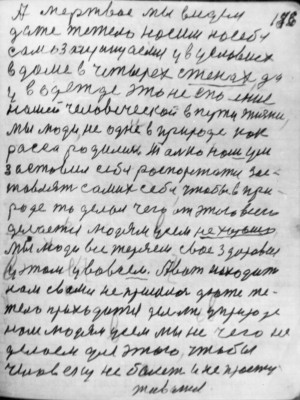 176
А мертвое мы видем
даже тежело носим на себя
самозащищаемся у в условиях
в доме в четырех стенах да
у в одежде это не спо лние
нашей человеческой в пути жизни,
мы люди не одне в природе как
раса родилися Талко наш ум
заставил себя распортати зас-
тавлят самих себя, чтобы в при-
роде то делал чего от этого всего
делается людям усем не хорошо,
мы люди все теряем свое здоровие
в этом у во всем. А вот находит
нам с вами не пришлося даже те-
тело приходится делати у природе
нам людям усем мы не чего не
делаем для этого, чтобы
человек у не болет и не просту-
живался